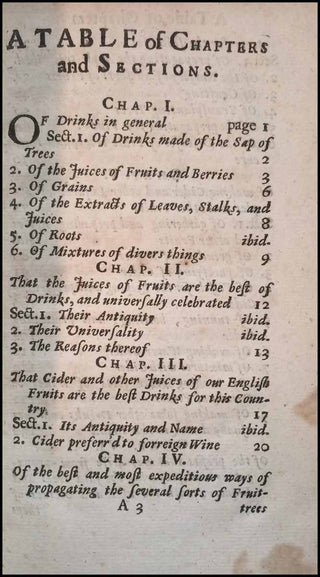 A TABLE of CHAPTERS
and SECTIONS.
CHAP. I.
OF Drinks in general page 1
Sect. 1. Of Drinks made of the Sap of
Trees 2
2. Of the Juices of Fruits and Berries 3
3. Of Grains 6
4. Of the Extracts of Leaves, Stalks, and
Juices 8
5. Of Roots ibid.
6. Of Mixtures of divers things 9
CHAP. II.
That the Juices of Fruits are the beſt of
Drinks, and univerſally celebrated 12
Sect. 1. Their Antiquity ibid.
2. Their Univerſality ibid.
3. The Reaſons thereof 13
CHAP. III.
That Cider and other Juices of our Engliſh
Fruits are the beſt Drinks for this Coun-
try. 17
Sect. 1. Its Antiquity and Name ibid.
2. Cider preferr'd to forreign Wine 20
CHAP. IV.
Of the beſt and moſt expeditious ways of
propagating the ſeveral ſorts of Fruit-
A 3 trees